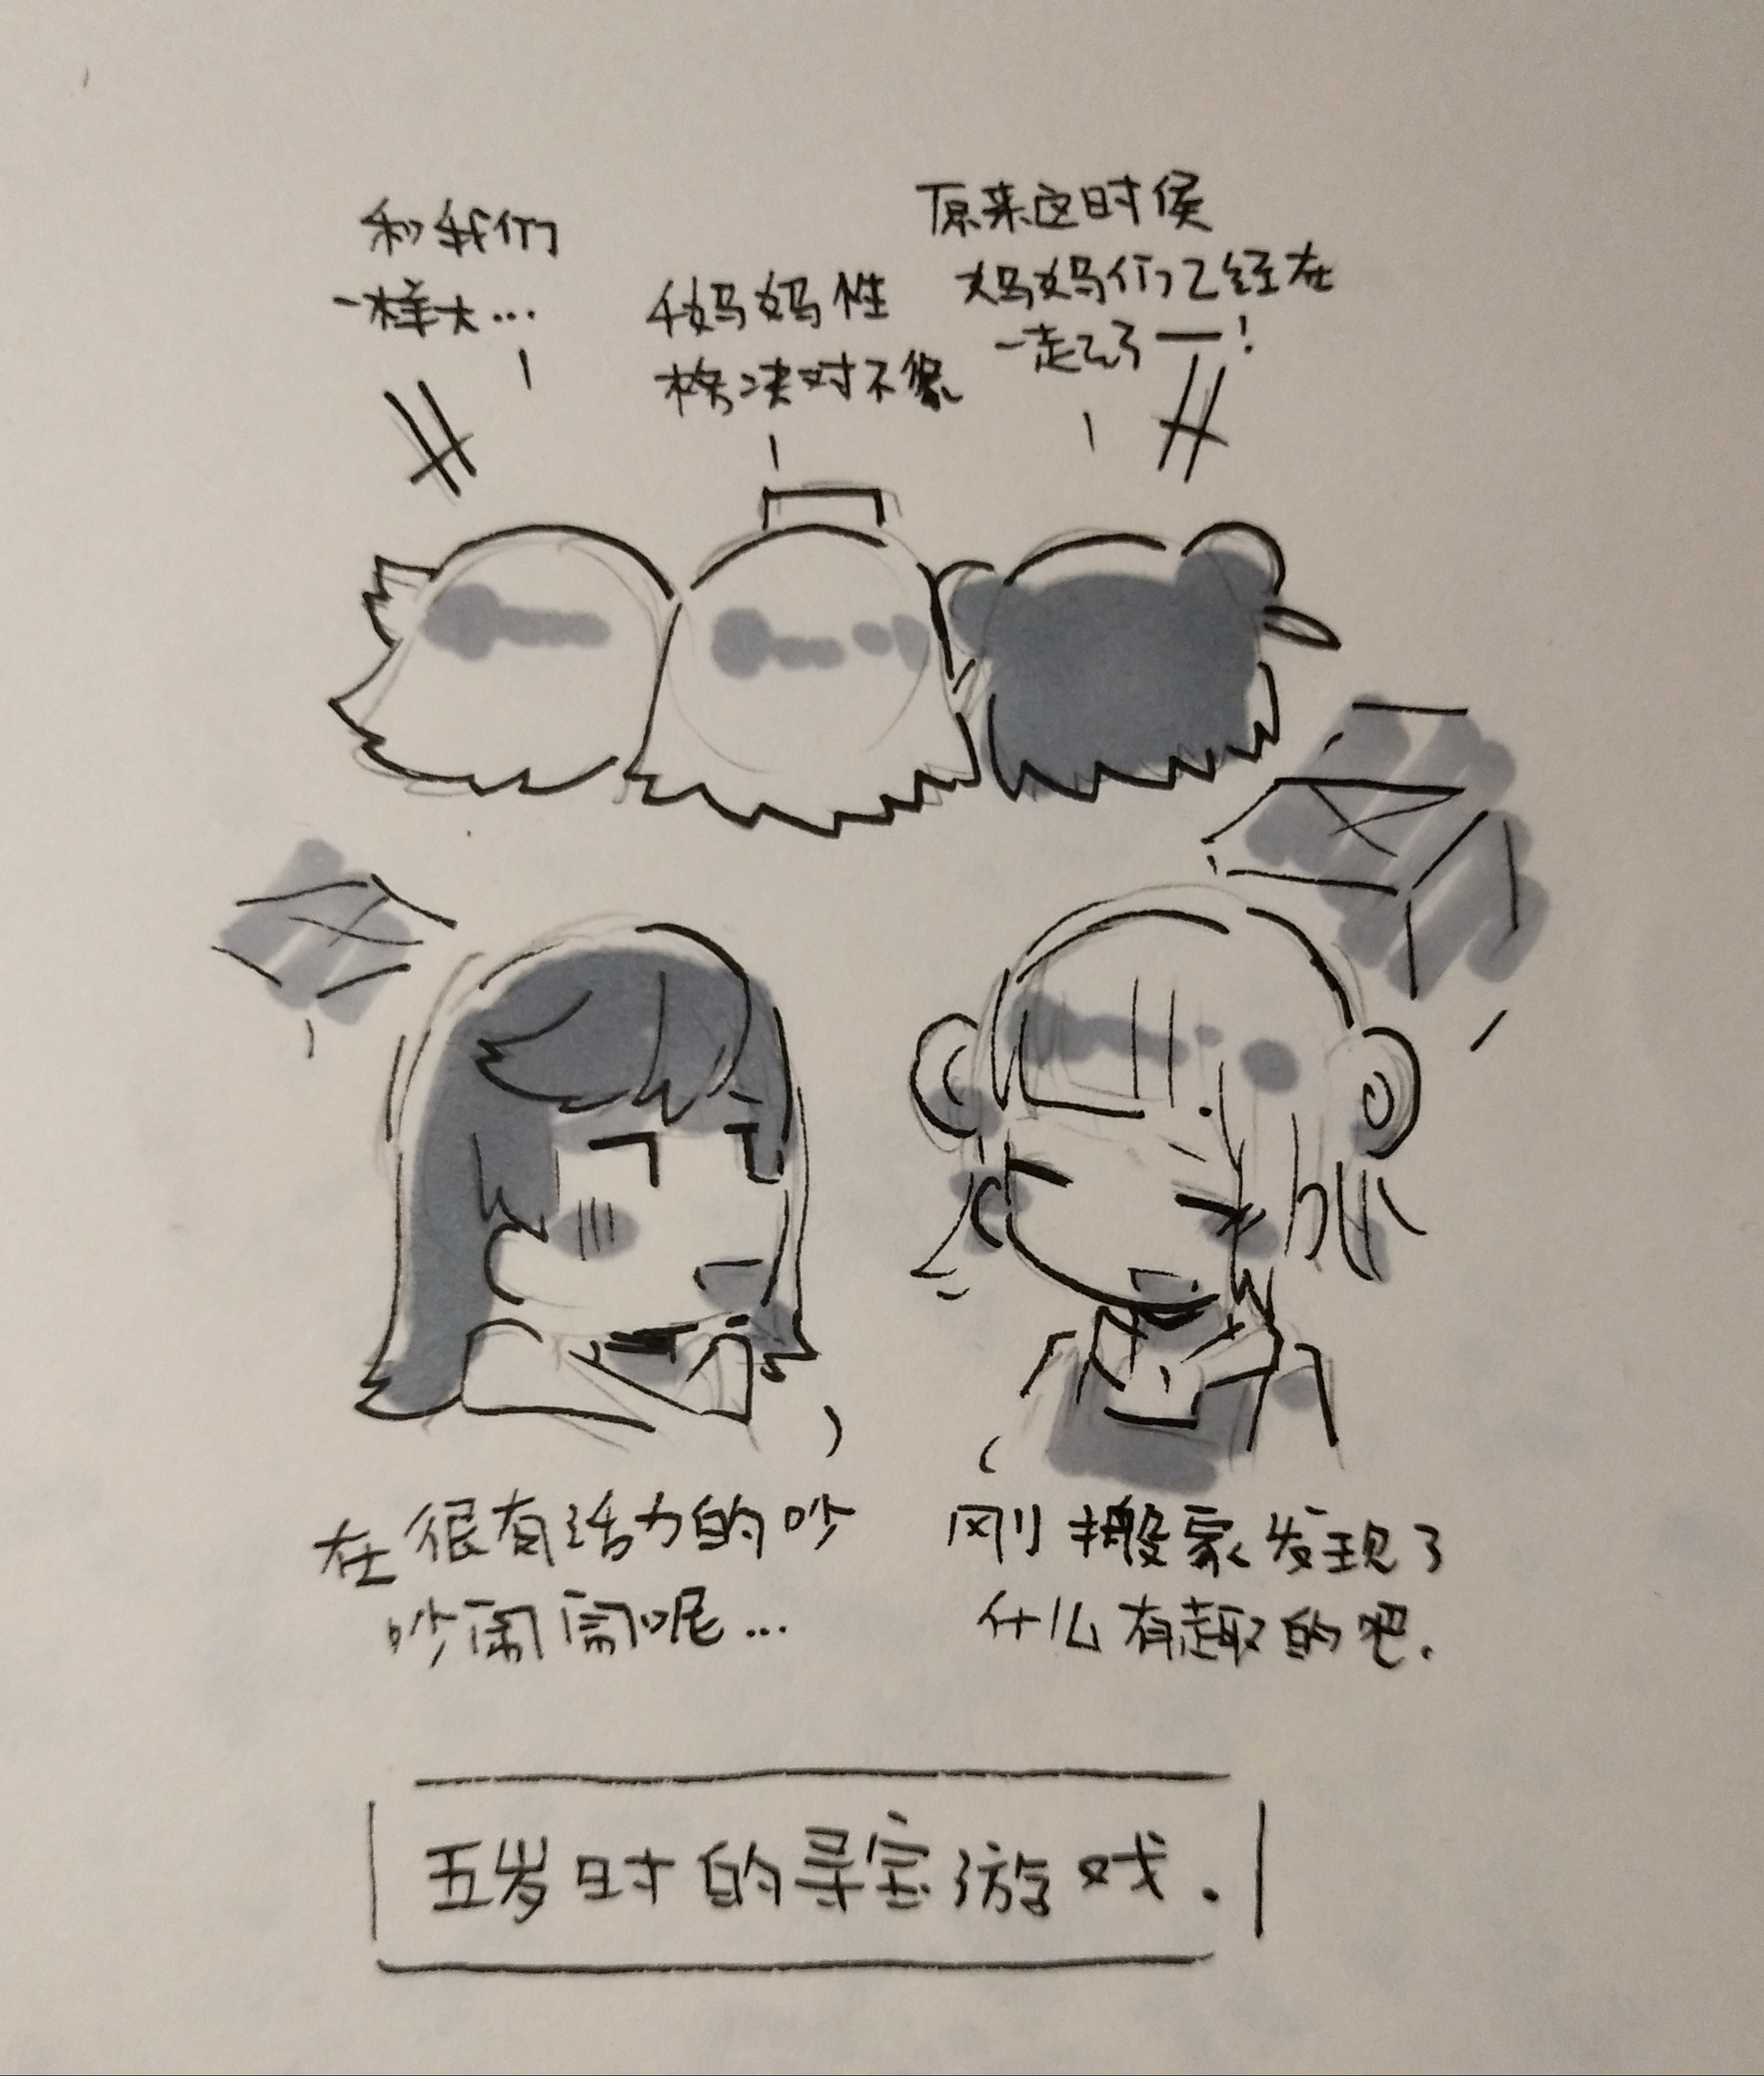 和我们
一样大...
和妈妈性
格决对不像
原来这时候
妈妈们已经在
一起了一！
在很有活力的吵
吵闹闹呢...
刚搬家发现了
什么有趣的吧.
五岁时的寻宝游戏.